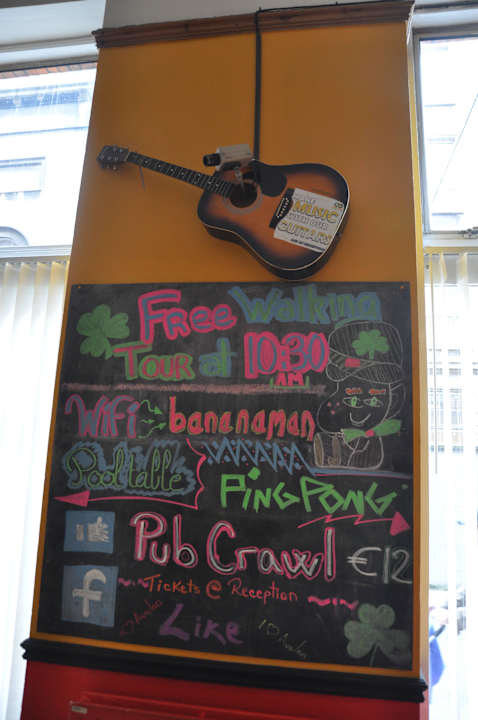 MAKE
MUSIC
WITH OUR
GUITARS
Free Walking
TOUR at 10:30
AM
WiFi bananaman
Pool table
PING PONG
Pub Crawl €12
f Tickets @ Reception
Like